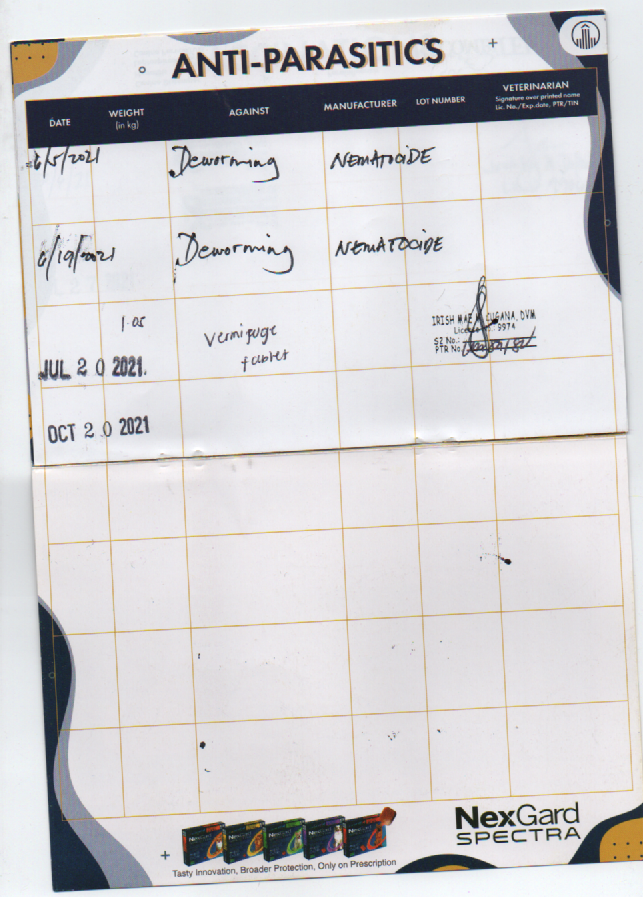 ANTI-PARASITICS
DATE WEIGHT (in kg) AGAINST MANUFACTURER LOT NUMBER VETERINARIAN
Signature over printed name
Lic. No./Exp.date, PTR/TIN
6/5/2021 Deworming NEMATOCIDE
6/19/2021 Deworming NEMATOCIDE
JUL 20 2021. 1.05 Vermifuge
tablet
IRISH MAE CUGANA, DVM
9974
S2 No.:
PTR No.
OCT 20 2021
NexGard
SPECTRA
Tasty Innovation, Broader Protection, Only on Prescription